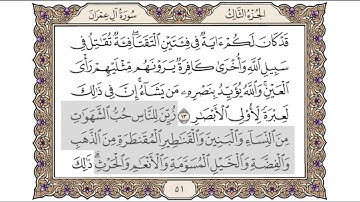 الجزء الثالث
سورة آل عمران
قَدْ كَانَ لَكُمْ ءَايَةٌ فِى فِئَتَيْنِ ٱلْتَقَتَا ۖ فِئَةٌ تُقَٰتِلُ فِى
سَبِيلِ ٱللَّهِ وَأُخْرَىٰ كَافِرَةٌ يَرَوْنَهُم مِّثْلَيْهِمْ رَأْىَ
ٱلْعَيْنِ ۚ وَٱللَّهُ يُؤَيِّدُ بِنَصْرِهِۦ مَن يَشَآءُ ۗ إِنَّ فِى ذَٰلِكَ
لَعِبْرَةً لِّأُو۟لِى ٱلْأَبْصَٰرِ ١٣ زُيِّنَ لِلنَّاسِ حُبُّ ٱلشَّهَوَٰتِ
مِنَ ٱلنِّسَآءِ وَٱلْبَنِينَ وَٱلْقَنَٰطِيرِ ٱلْمُقَنطَرَةِ مِنَ ٱلذَّهَبِ
وَٱلْفِضَّةِ وَٱلْخَيْلِ ٱلْمُسَوَّمَةِ وَٱلْأَنْعَٰمِ وَٱلْحَرْثِ ۗ ذَٰلِكَ
٥١